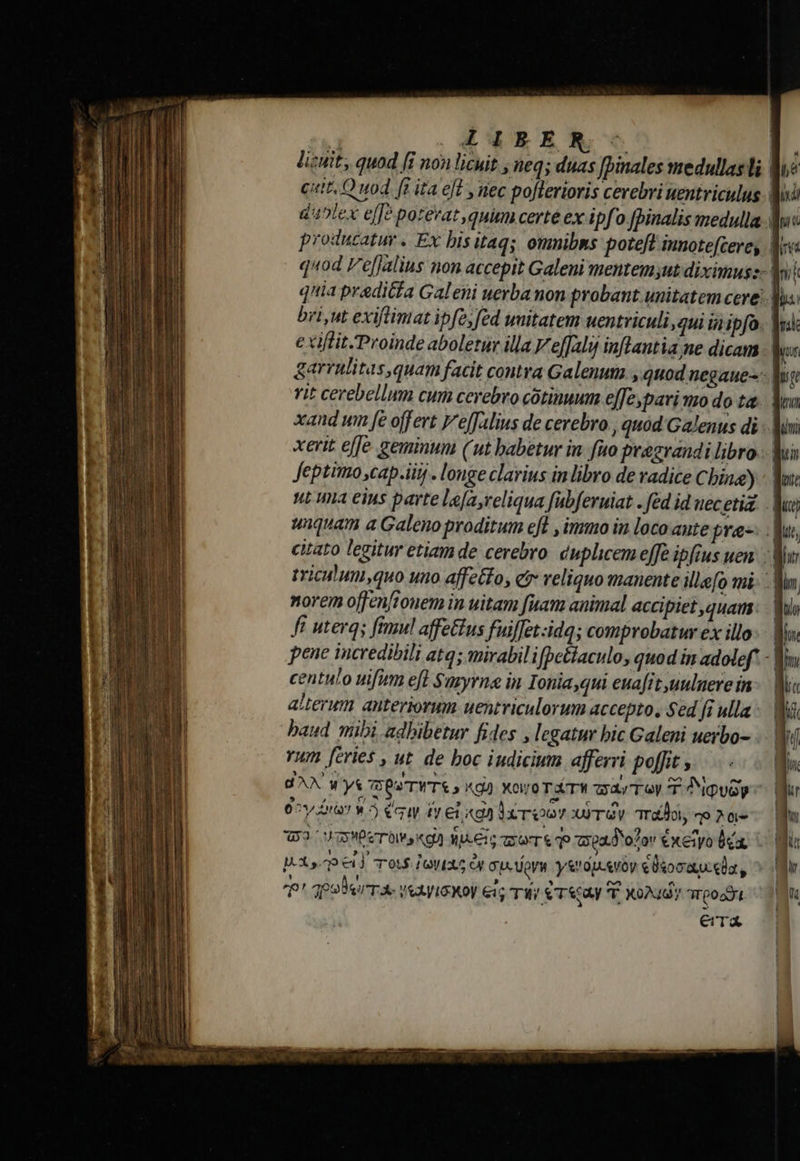 LIBER
licuit, quod si non licuit, neq; duas spinales medullas li
cuit. Quod si ita est, nec posterioris cerebri uentriculus
duplex esse poterat, quum certe ex ipso spinalis medulla
producatur. Ex his itaq; omnibus potest innotescere,
quod Vessalius non accepit Galeni mentem, ut diximus:
quia prædicta Galeni uerba non probant unitatem cere
bri, ut existimat ipse, sed unitatem uentriculi, qui in ipso
existit. Proinde aboletur illa Vessalij instantia ne dicam
garrulitas, quam facit contra Galenum, quod negaue-
rit cerebellum cum cerebro cōtinuum esse, pari modo ta
xandum se offert Vessalius de cerebro, quod Galenus di
xerit esse geminum (ut habetur in suo prægrandi libro
septimo, cap. iiij. longe clarius in libro de radice Chinæ)
ut una eius parte læsa, reliqua subseruiat. sed id nec etiā
unquam a Galeno proditum est, immo in loco ante præ-
citato legitur etiam de cerebro duplicem esse ipsius uen
triculum, quo uno affecto, & reliquo manente illæso mi
norem offensionem in uitam suam animal accipiet, quam
si uterq; simul affectus fuisset: idq; comprobatur ex illo
pene incredibili atq; mirabili spectaculo, quod in adolef
centulo uisum est Smyrnæ in Ionia, qui euasit, uulnere in
alterum anteriorum uentriculorum accepto. Sed si ulla
haud mihi adhibetur fides, legatur hic Galeni uerbo-
rum series, ut de hoc iudicium afferri possit,
ἀλλ' ἥγε πρώτητε, καὶ κοινοτάτη πάντων τ διφυῶν
ὀργάνων ἤ ἐστιν ἐν εἰ καὶ θάτερον αὐτῶν πάθοι, τὸ λοι-
καὶ ἡμεῖς ποτε τὸ παράδοξον ἐκεῖνο θέα
τῆς ἰωνίας ἐν σμύρνη γενόμενον ἐθεοσάμεθα,
τρωθέντα νεανίσκον εἰς τὴν ἑτέραν τ κοιλιῶν προσθι
εντα